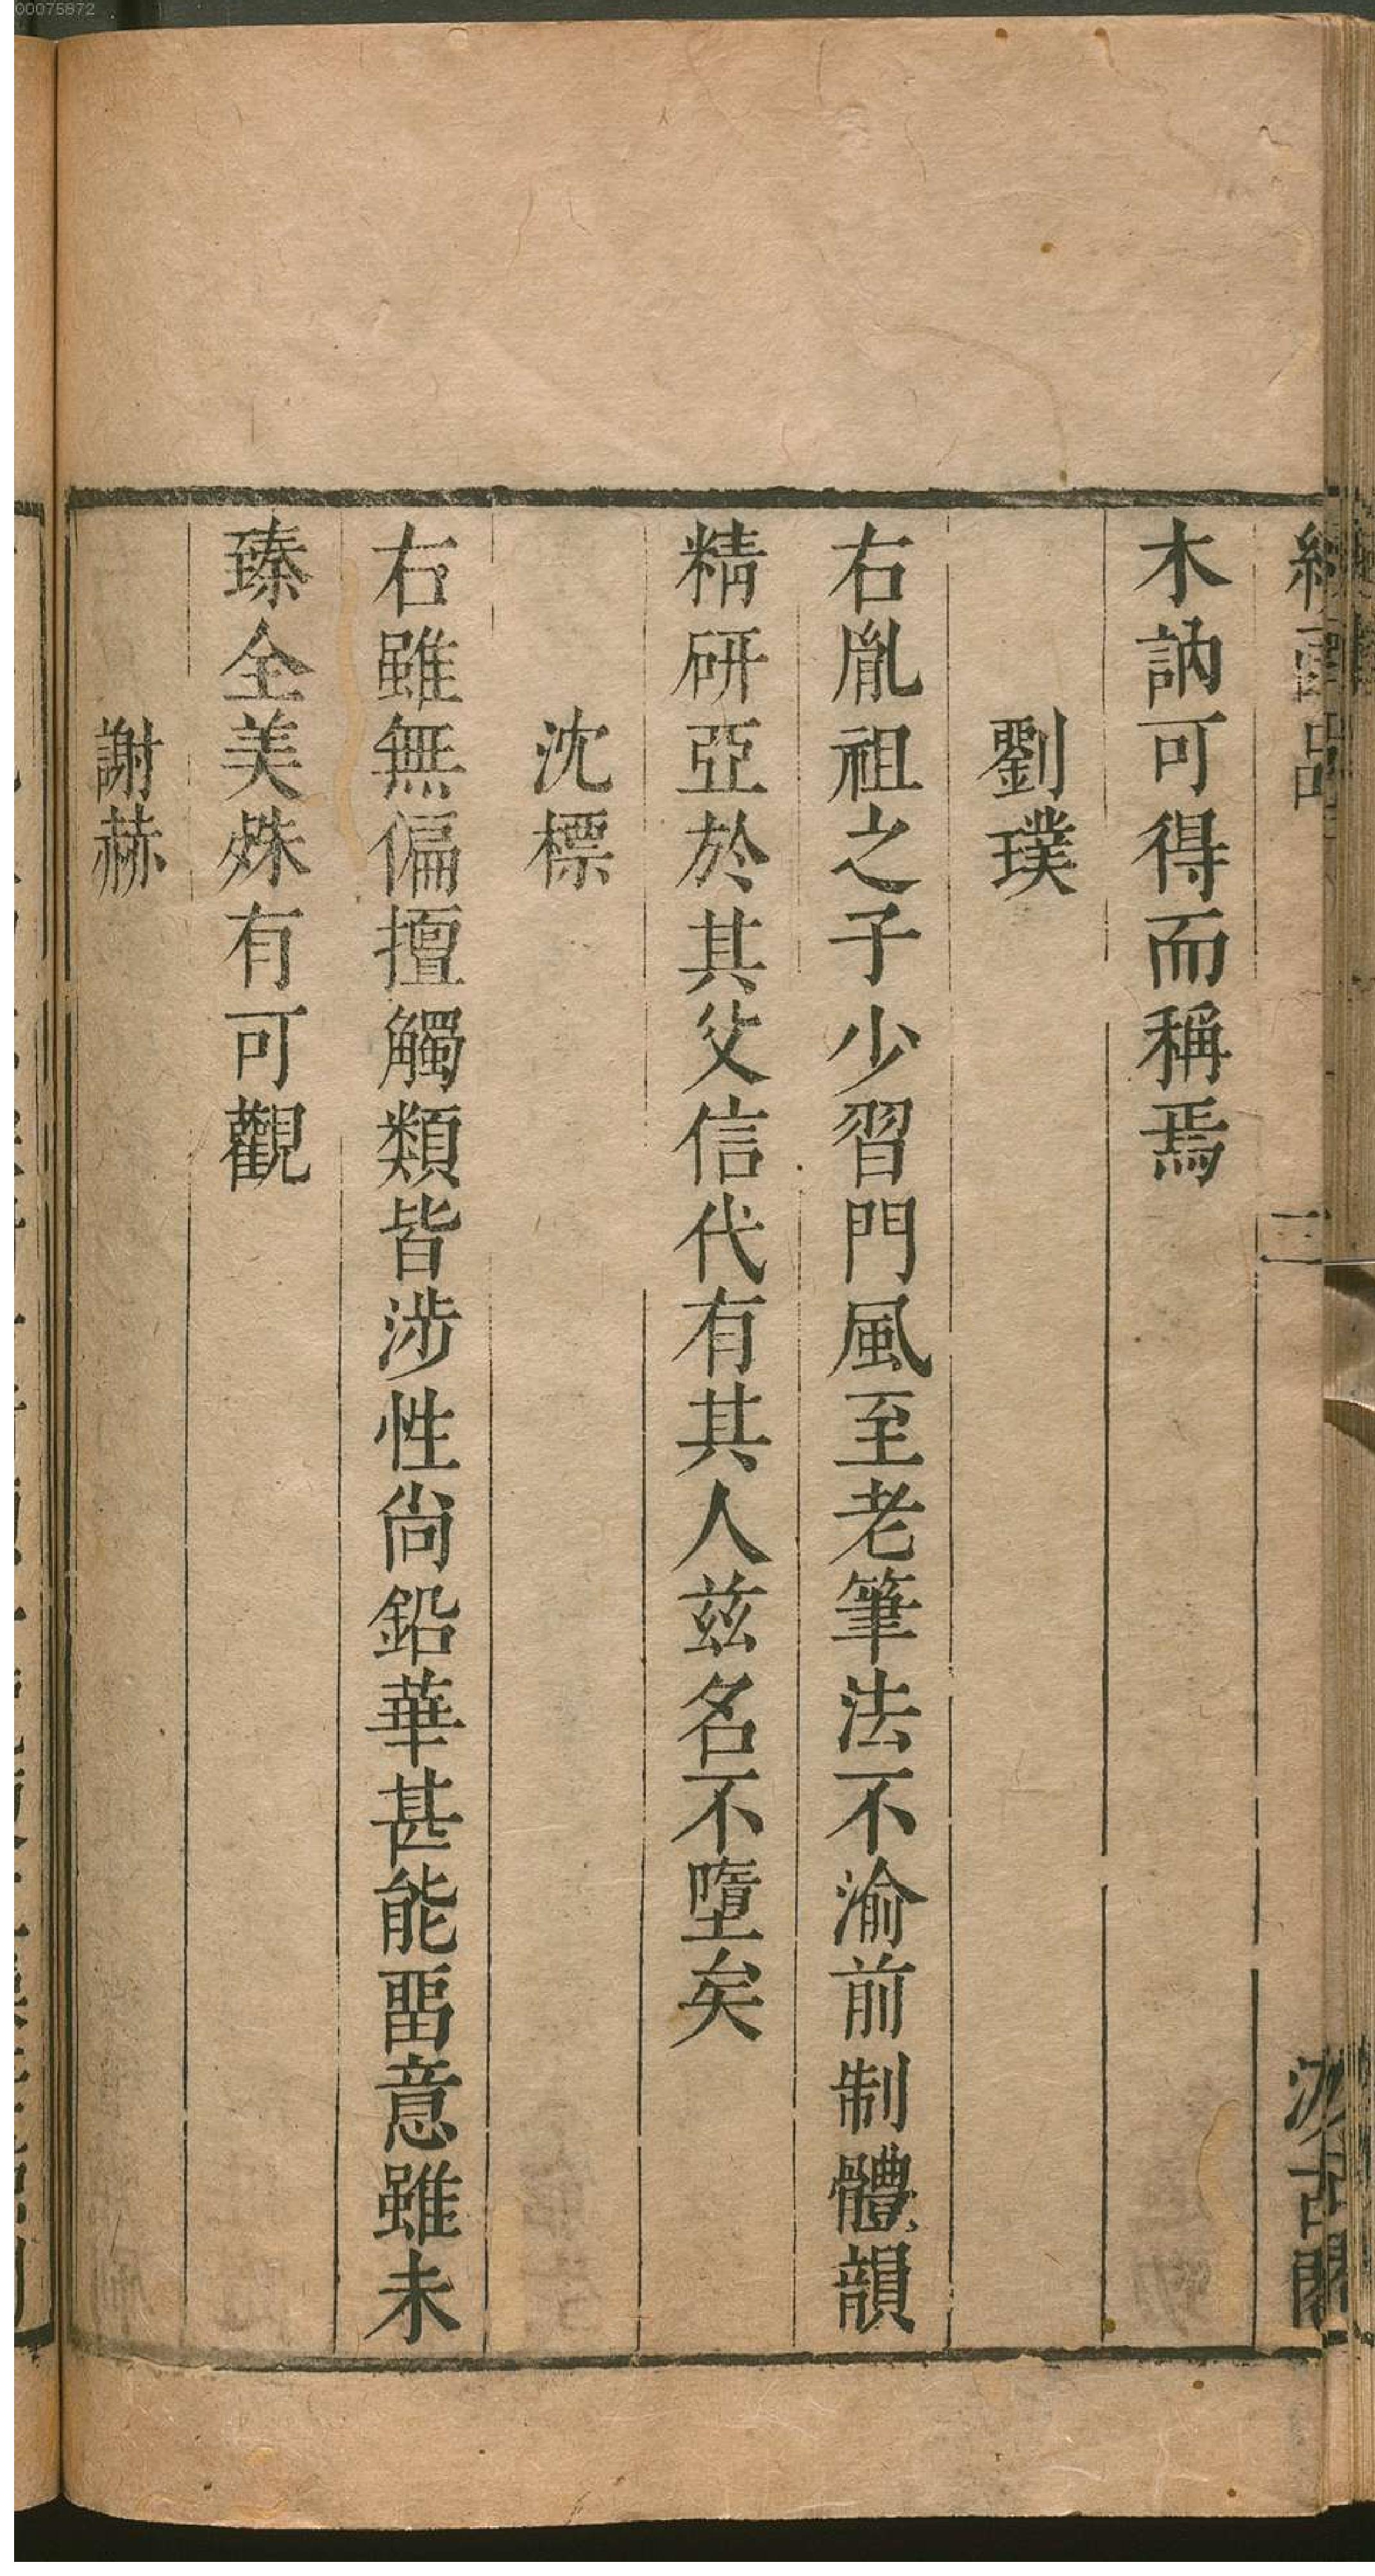 00075872
續畫品
三
汲古閣
木訥可得而稱焉
劉璞
右胤祖之子少習門風至老筆法不渝前制體韻
精研亞於其父信代有其人兹名不墮矣
沈標
右雖無偏擅觸類皆涉性尚鉛華甚能畱意雖未
臻全美殊有可觀
謝赫